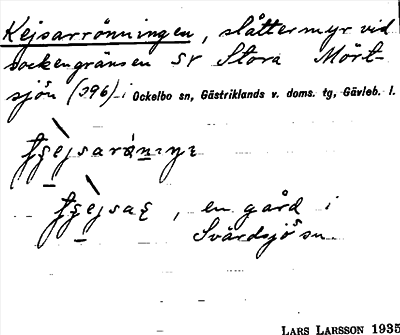 Kejsarrönningen, slåttermyr vid
sockengränsen SV Stora Mört-
sjön (296) i Ockelbo sn, Gästriklands v. doms. tg, Gävleb. l.
, en gård i
Svärdsjö sn.
LARS LARSSON 1935